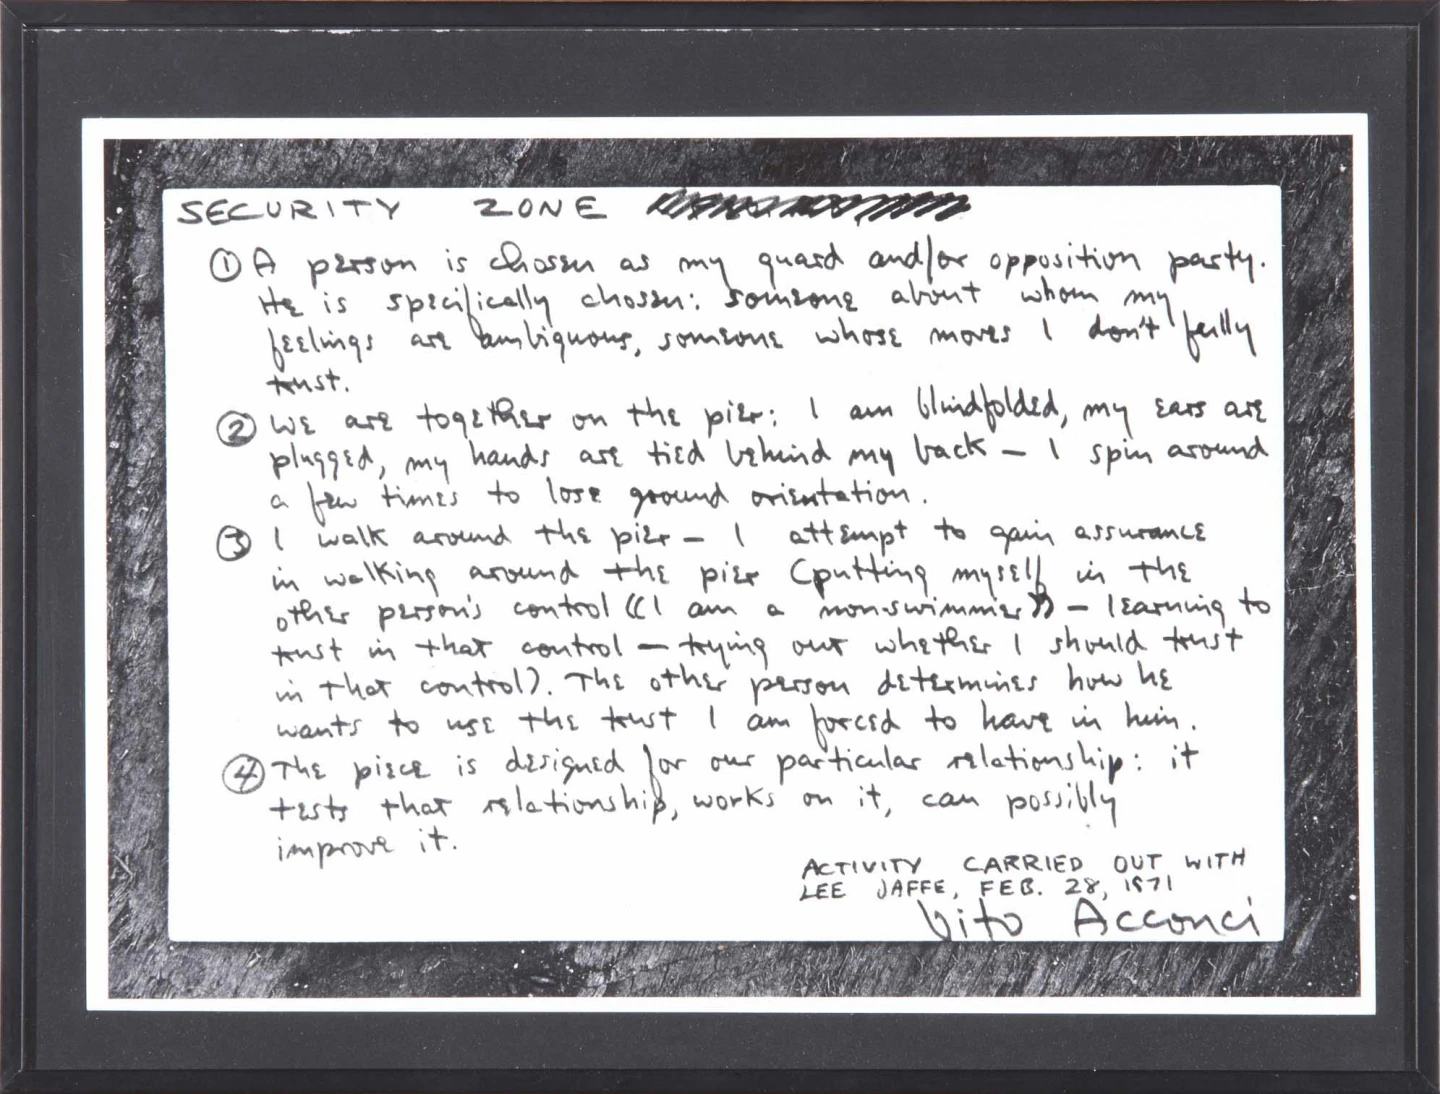 SECURITY ZONE
① A person is chosen as my guard and/or opposition party.
He is specifically chosen: someone about whom my
feelings are ambiguous, someone whose moves I don't fully
trust.
② We are together on the pier: I am blindfolded, my ears are
plugged, my hands are tied behind my back – I spin around
a few times to lose ground orientation.
③ I walk around the pier – I attempt to gain assurance
in walking around the pier (putting myself in the
other person's control ((I am a non-swimmer)) – learning to
trust in that control – trying out whether I should trust
in that control). The other person determines how he
wants to use the trust I am forced to have in him.
④ The piece is designed for our particular relationship: it
tests that relationship, works on it, can possibly
improve it.
ACTIVITY CARRIED OUT WITH
LEE JAFFE, FEB. 28, 1971
Vito Acconci